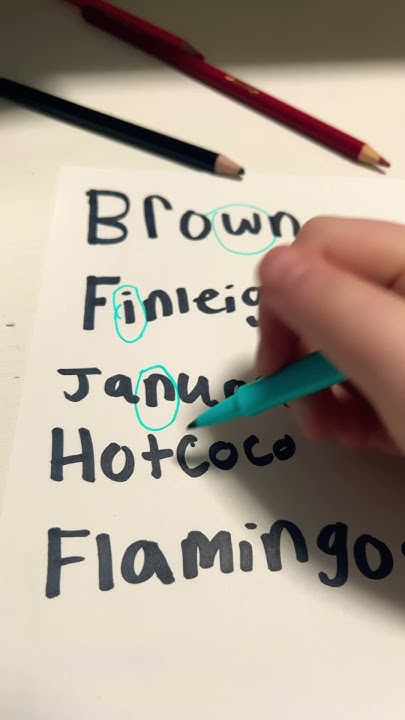 Brown
Finleig
Janua
Hotcoco
Flamingo